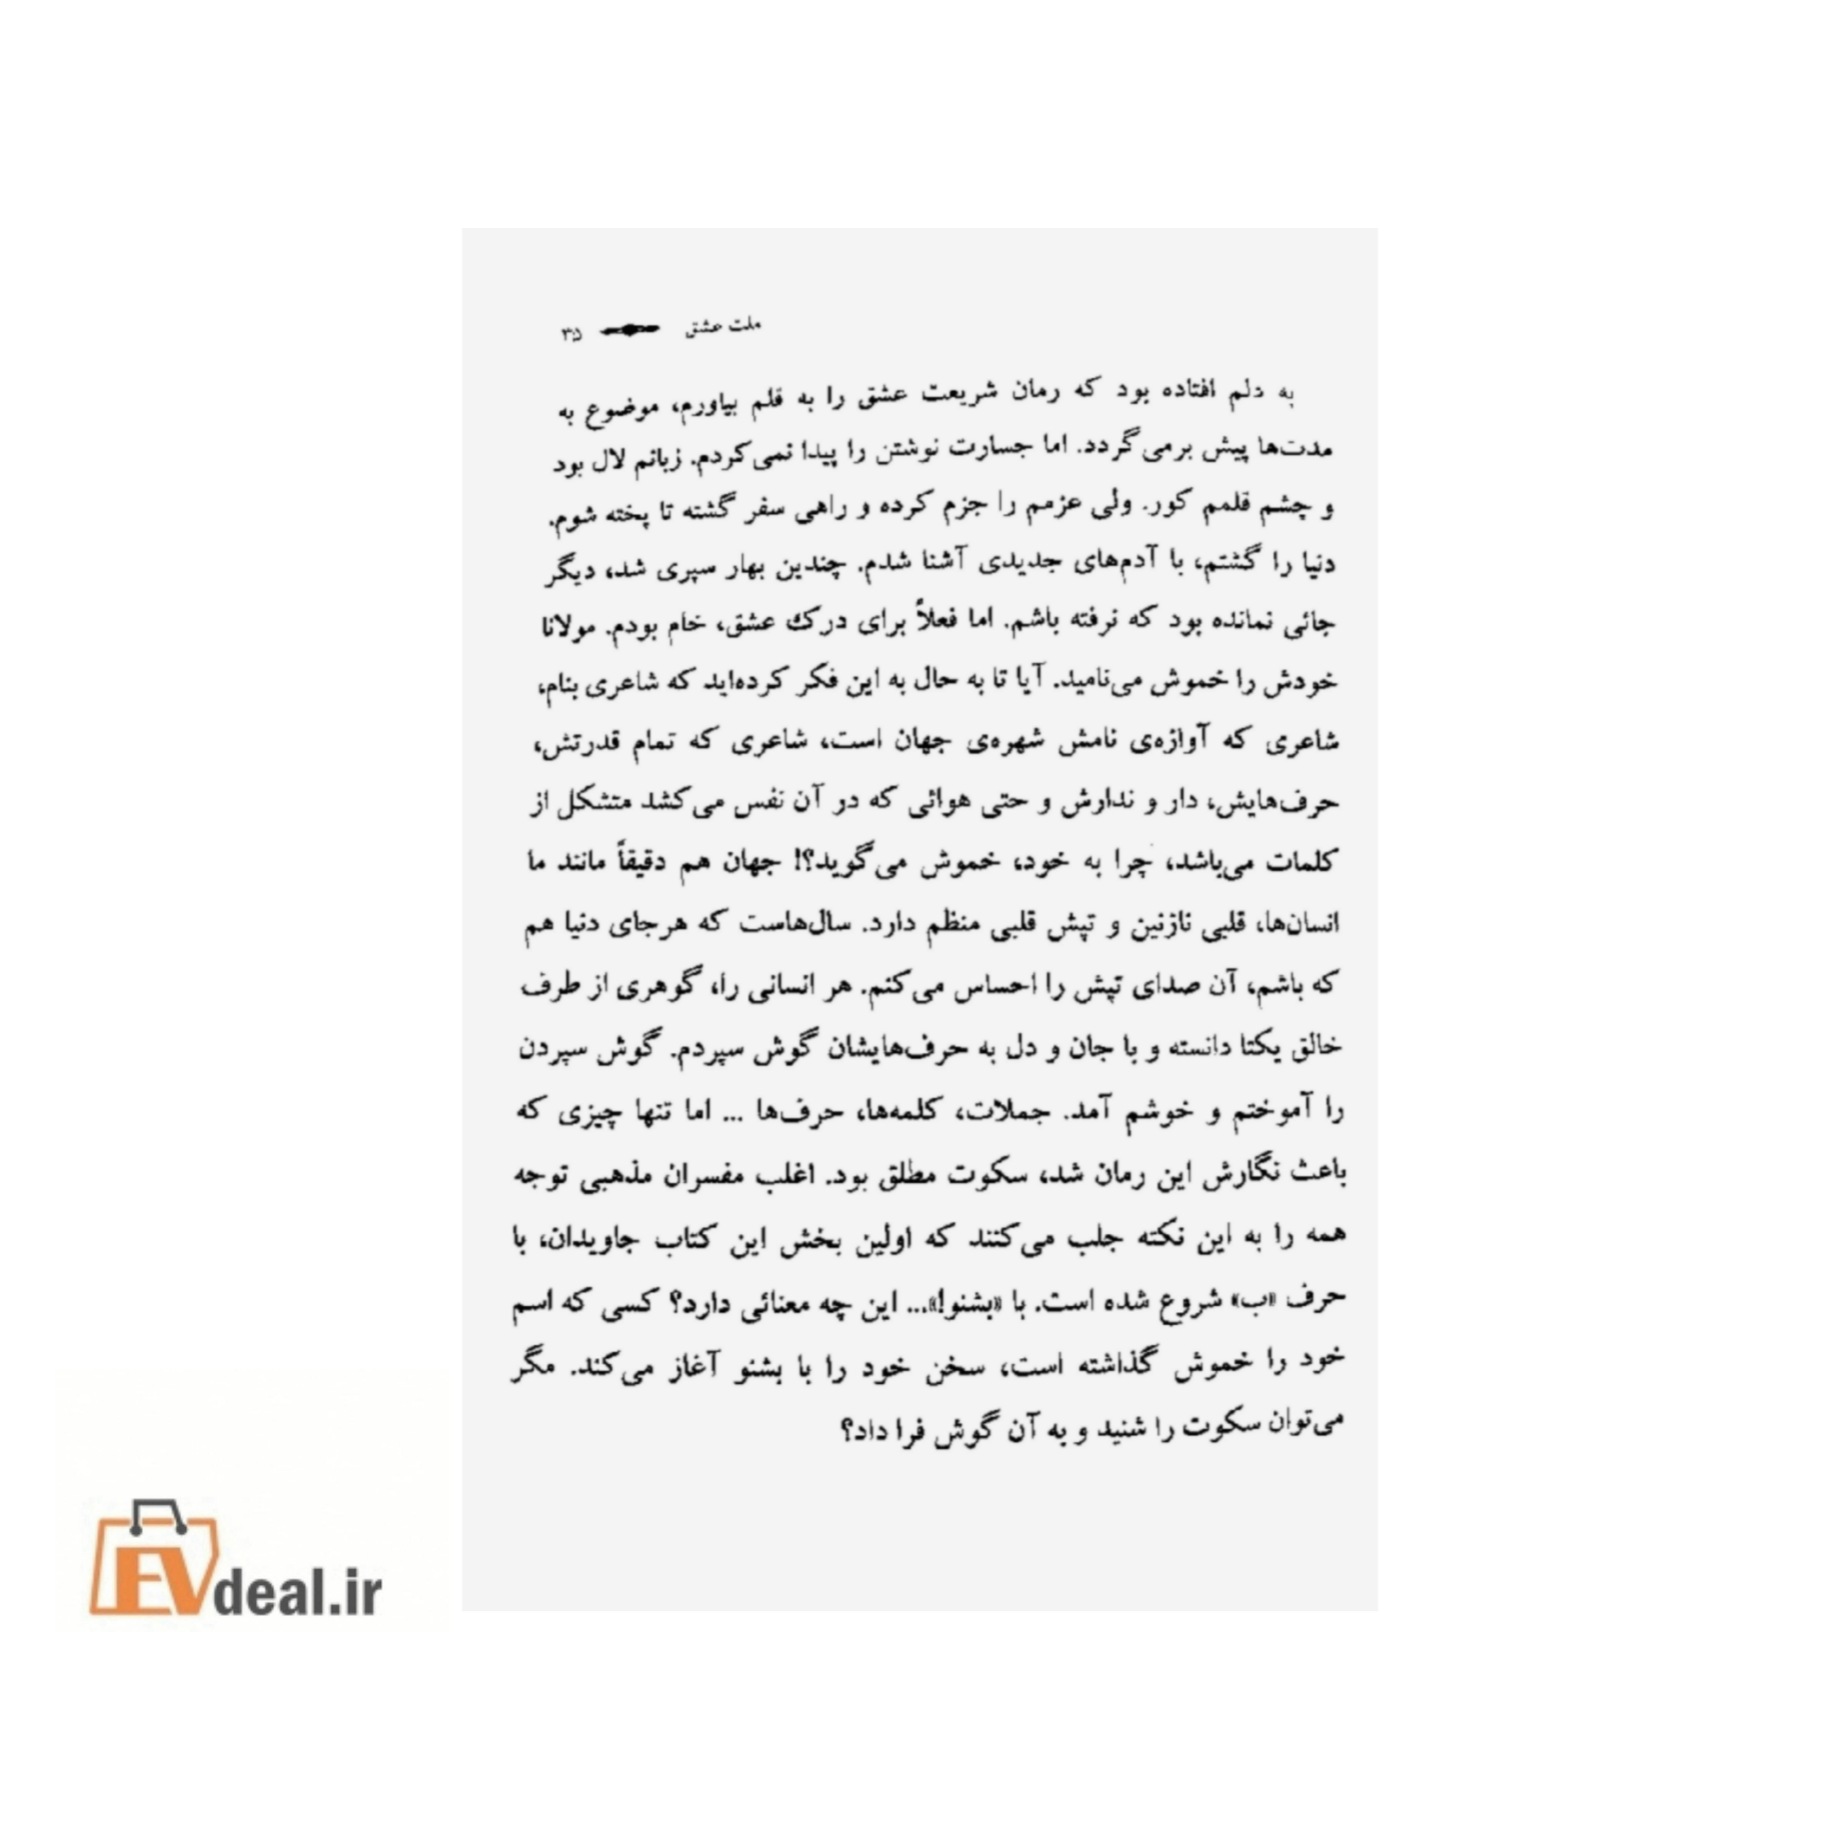 ملت عشق ۳۵
به دلم افتاده بود که رمان شریعت عشق را به قلم بیاورم، موضوع به
مدت‌ها پیش برمی‌گردد. اما جسارت نوشتن را پیدا نمی‌کردم. زبانم لال بود
و چشم قلمم کور. ولی عزمم را جزم کرده و راهی سفر گشته تا پخته شوم.
دنیا را گشتم، با آدم‌های جدیدی آشنا شدم. چندین بهار سپری شد، دیگر
جائی نمانده بود که نرفته باشم. اما فعلاً برای درک عشق، خام بودم. مولانا
خودش را خموش می‌نامید. آیا تا به حال به این فکر کرده‌اید که شاعری بنام،
شاعری که آوازه‌ی نامش شهره‌ی جهان است، شاعری که تمام قدرتش،
حرف‌هایش، دار و ندارش و حتی هوائی که در آن نفس می‌کشد متشکل از
کلمات می‌باشد، چرا به خود، خموش می‌گوید؟! جهان هم دقیقاً مانند ما
انسان‌ها، قلبی نازنین و تپش قلبی منظم دارد. سال‌هاست که هرجای دنیا هم
که باشم، آن صدای تپش را احساس می‌کنم. هر انسانی را، گوهری از طرف
خالق یکتا دانسته و با جان و دل به حرف‌هایشان گوش سپردم. گوش سپردن
را آموختم و خوشم آمد. جملات، کلمه‌ها، حرف‌ها ... اما تنها چیزی که
باعث نگارش این رمان شد، سکوت مطلق بود. اغلب مفسران مذهبی توجه
همه را به این نکته جلب می‌کنند که اولین بخش این کتاب جاویدان، با
حرف «ب» شروع شده است. با «بشنو!»... این چه معنائی دارد؟ کسی که اسم
خود را خموش گذاشته است، سخن خود را با بشنو آغاز می‌کند. مگر
می‌توان سکوت را شنید و به آن گوش فرا داد؟
EVdeal.ir